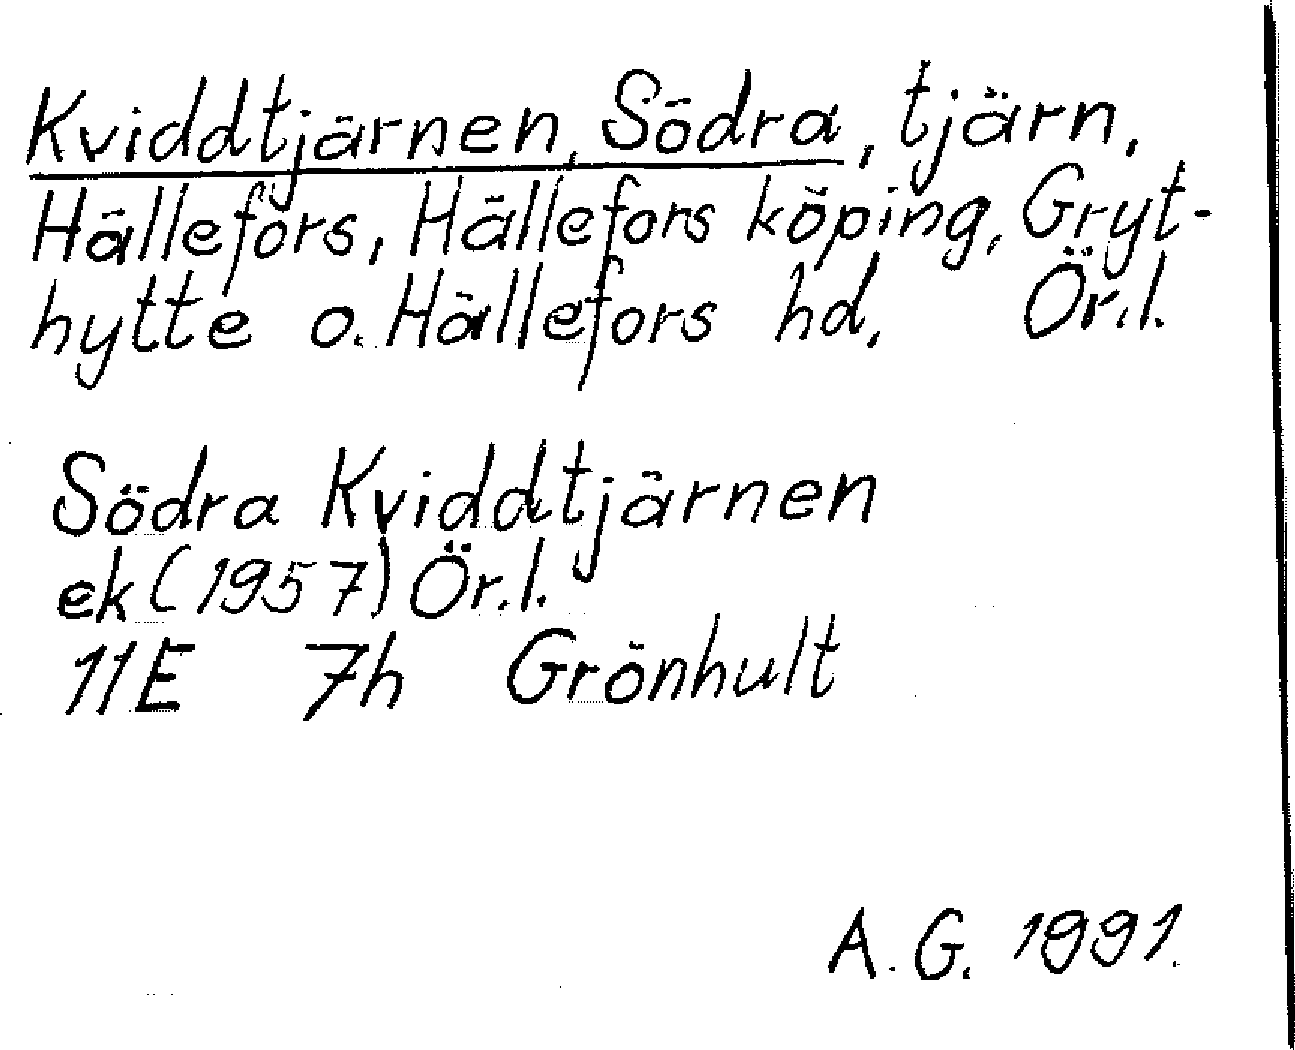 Kviddtjärnen, Södra, tjärn,
Hällefors, Hällefors köping, Gryt-
hytte o. Hällefors hd, Ör.l.
Södra Kviddtjärnen
ek (1957) Ör.l.
11E 7h Grönhult
A.G. 1991.